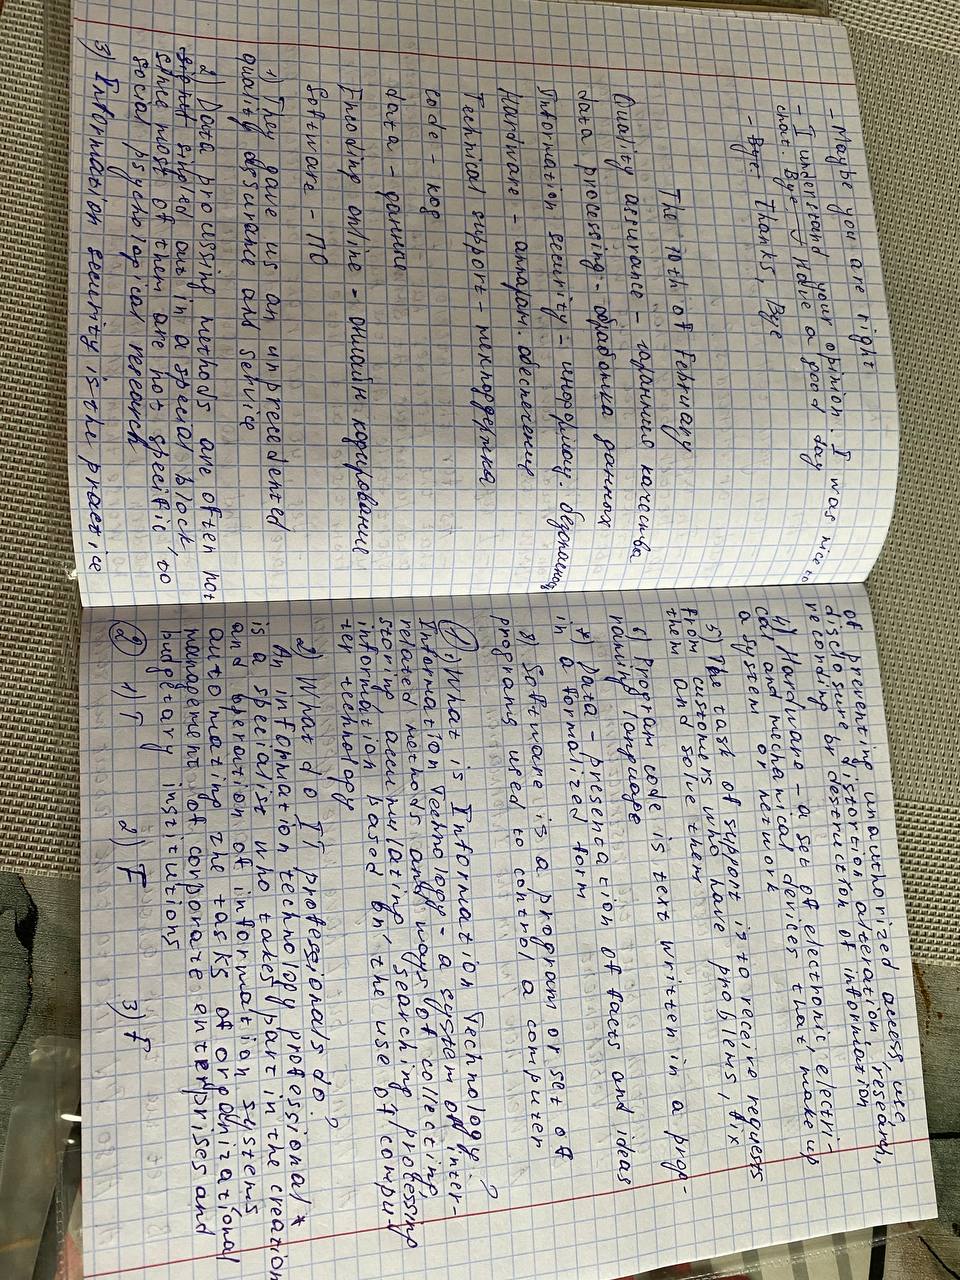 - Maybe you are right
- I understand your opinion. I was nice to
chat. Bye Have a good day
- Bye. Thanks, Bye
The 10th of February
Quality assurance - гарантия качества
data processing - обработка данных
Information security - информац. безопасность
Hardware - аппарат. обеспечение
Technical support - техподдержка
code - код
data - данные
Encoding online - онлайн кодирование
Software - ПО
1) They gave us an unprecedented
quality assurance and service
2) Data processing methods are often not
singled out in a special block,
since most of them are not specific to
social psychological research
3) Information security is the practice
of preventing unauthorized access, use,
disclosure, distortion, alteration, research,
recording or destruction of information
4) Hardware - a set of electronic, electri-
cal and mechanical devices that make up
a system or network
5) The task of support is to receive requests
from customers who have problems, fix
them and solve them
6) Program code is text written in a prog-
raming language
7) Data - presentation of facts and ideas
in a formalized form
8) Software is a program or set of
programs used to control a computer
1 1) What is Information Technology?
Information Technology - a system of inter-
related methods and ways of collecting,
storing, accumulating, searching, processing
information based on the use of compu-
ter technology
2) What do IT professionals do?
An information technology professional
is a specialist who takes part in the creation
and operation of information systems,
automating the tasks of organizational
management of corporate enterprises and
budgetary institutions
2 1) T 2) F 3) F